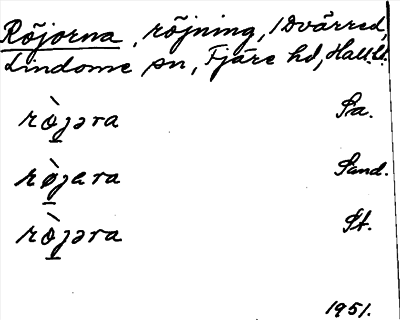 Röjorna, röjning, i Dvärred,
Lindome sn, Fjäre hd, Hall.l.
rø̠̀jəra Sa.
rø̠̀jera Sand.
rø̠̀jəra St.
1951.